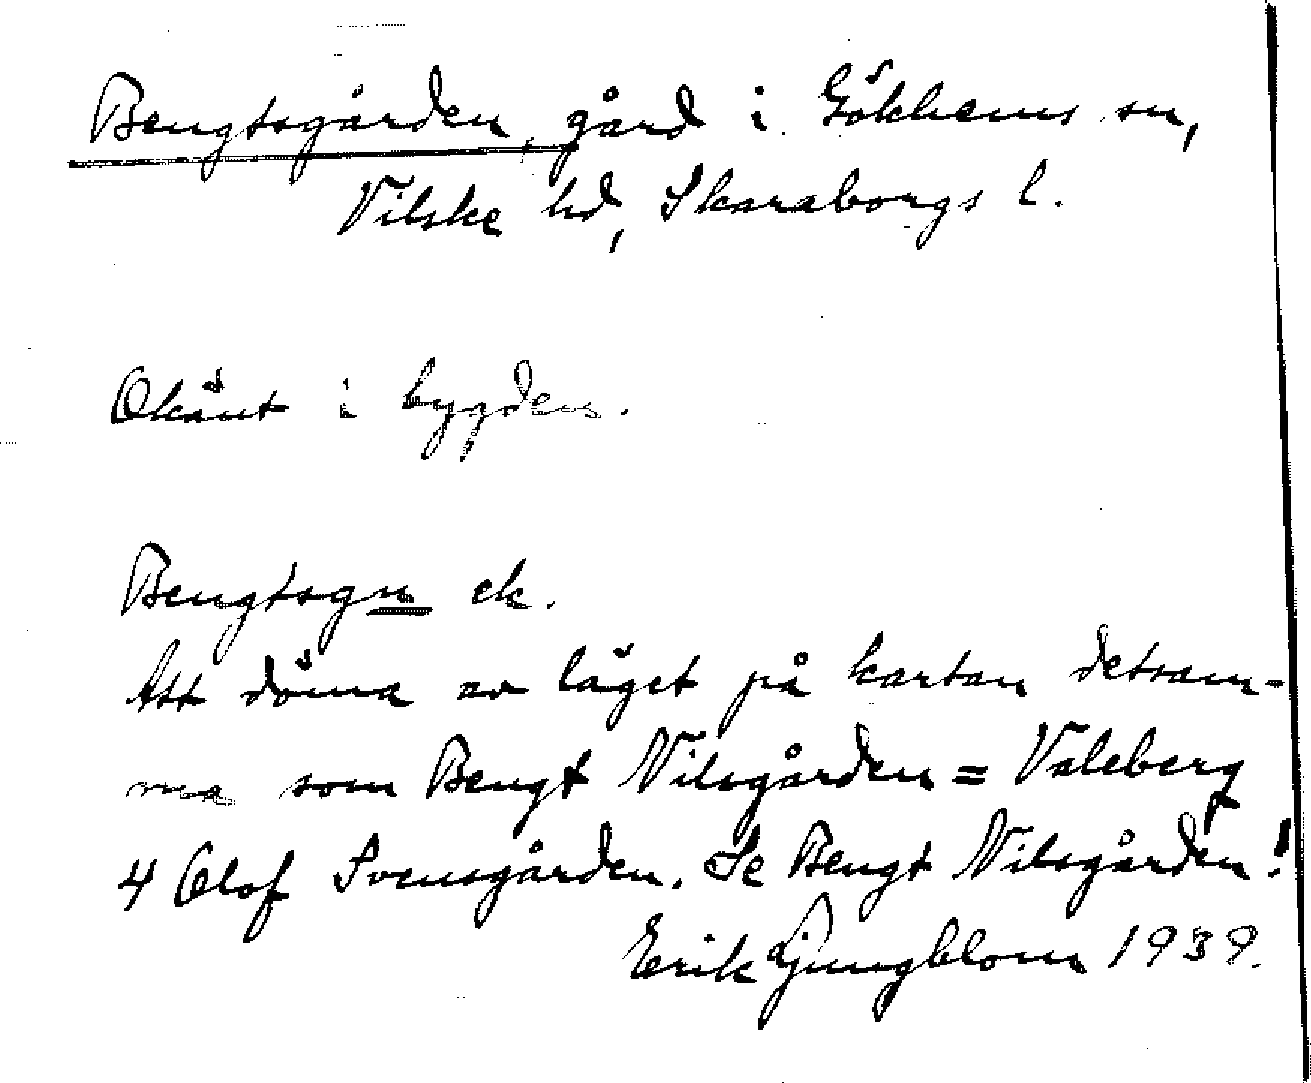 Bengtsgården, gård i Gökhems sn,
Vilske hd, Skaraborgs l.
Okänt i bygden.
Bengtsgn ek.
Att döma av läget på kartan detsam-
ma som Bengt Nilsgården = Valeberg
4 Olof Svensgården. Se Bengt Nilsgården!
Erik Ljungblom 1939.